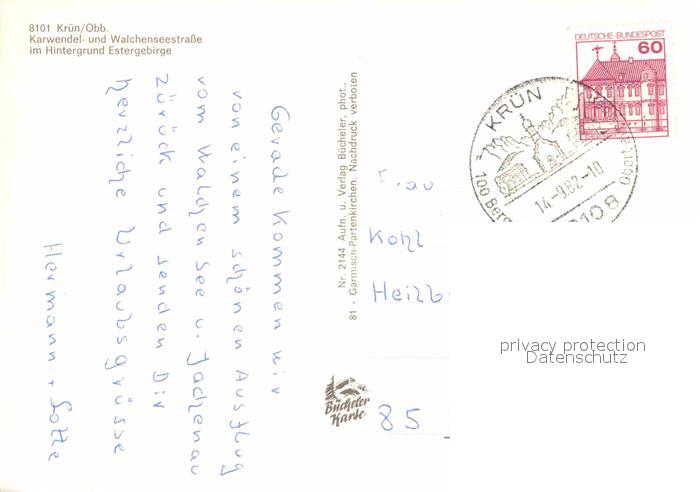 8101 Krün/Obb.
Karwendel- und Walchenseestraße
im Hintergrund Estergebirge
Gerade kommen wir
von einem schönen Ausflug
vom Walchensee u. Jachenau
zurück und senden Dir
herzliche Urlaubsgrüsse
Hermann + Lotte
Nr. 2144 Aufn. u. Verlag Bücheler, phot.,
81 - Garmisch-Partenkirchen. Nachdruck verboten
DEUTSCHE BUNDESPOST
60
KRÜN
14.-9.82-10
8108
Frau
Kohl
Heilb
85
Bücheler
Karte
privacy protection
Datenschutz